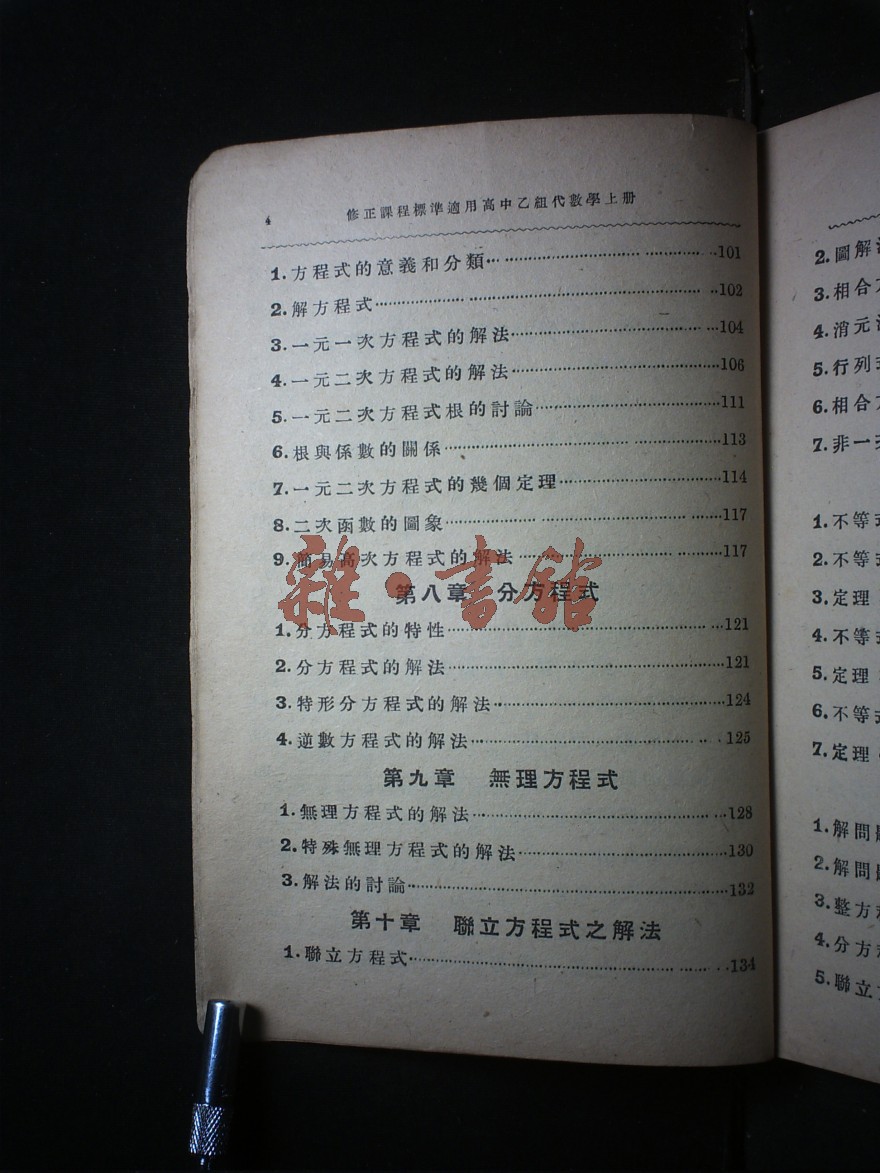 4 修正課程標準適用高中乙組代數學上册
1.方程式的意義和分類……101
2.解方程式……102
3.一元一次方程式的解法……104
4.一元二次方程式的解法……106
5.一元二次方程式根的討論……111
6.根與係數的關係……113
7.一元二次方程式的幾個定理……114
8.二次函數的圖象……117
9.簡易高次方程式的解法……117
第八章 分方程式
1.分方程式的特性……121
2.分方程式的解法……121
3.特形分方程式的解法……124
4.逆數方程式的解法……125
第九章 無理方程式
1.無理方程式的解法……128
2.特殊無理方程式的解法……130
3.解法的討論……132
第十章 聯立方程式之解法
1.聯立方程式……134
雜·書館
2.圖解
3.相合
4.消元
5.行列
6.相合
7.非一
1.不等
2.不等
3.定理
4.不等
5.定理
6.不等
7.定理
1.解問
2.解問
3.整方
4.分方
5.聯立